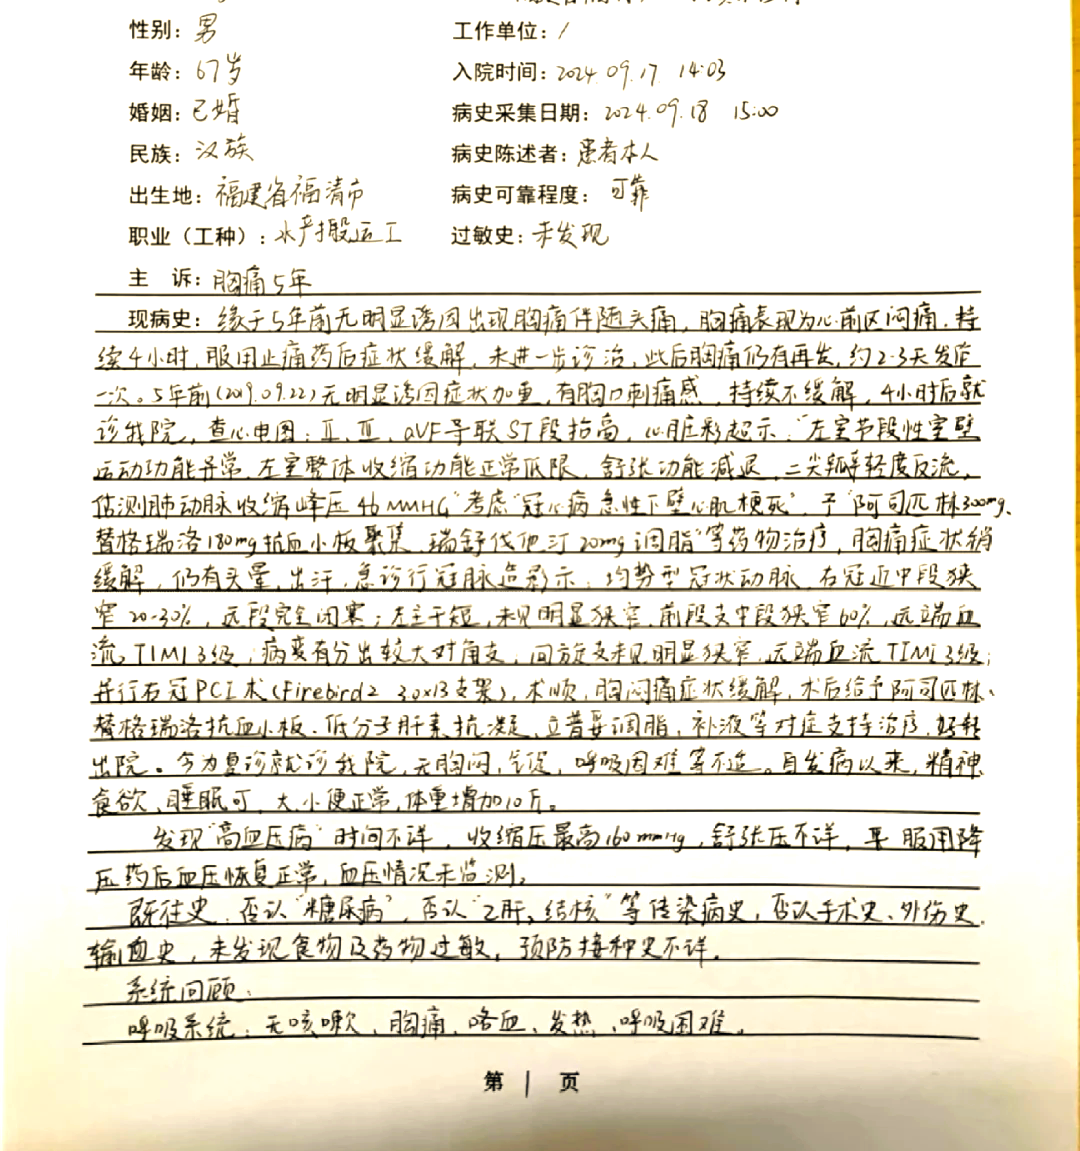 性别：男 工作单位：/
年龄：67岁 入院时间：2024.09.17 14:03
婚姻：已婚 病史采集日期：2024.09.18 15:00
民族：汉族 病史陈述者：患者本人
出生地：福建省福清市 病史可靠程度：可靠
职业（工种）：水产搬运工 过敏史：未发现
主 诉：胸痛5年
现病史：缘于5年前无明显诱因出现胸痛伴随头痛，胸痛表现为心前区闷痛，持
续4小时，服用止痛药后症状缓解，未进一步诊治，此后胸痛仍有再发，约2-3天发作
一次。5年前(2019.09.22)无明显诱因症状加重，有胸口刺痛感，持续不缓解，4小时后就
诊我院，查心电图：Ⅱ、Ⅲ、aVF导联ST段抬高，心脏彩超示："左室节段性室壁
运动功能异常，左室整体收缩功能正常低限，舒张功能减退，二尖瓣轻度反流，
估测肺动脉收缩峰压46MMHG"考虑"冠心病 急性下壁心肌梗死"，予"阿司匹林300mg、
替格瑞洛180mg抗血小板聚集，瑞舒伐他汀20mg调脂"等药物治疗，胸痛症状稍
缓解，仍有头晕，出汗，急诊行冠脉造影示：均势型冠状动脉，右冠近中段狭
窄20-30%，远段完全闭塞；左主干短，未见明显狭窄，前段支中段狭窄60%，远端血
流TIMI3级，病变有分出较大对角支，回旋支未见明显狭窄，远端血流TIMI3级；
并行右冠PCI术(Firebird2 3.0x13支架)，术顺，胸闷痛症状缓解，术后给予阿司匹林、
替格瑞洛抗血小板、低分子肝素抗凝、立普妥调脂，补液等对症支持治疗，好转
出院。今为复诊就诊我院，无胸闷，气促，呼吸困难等不适。自发病以来，精神，
食欲、睡眠可，大、小便正常，体重增加10斤。
发现"高血压病"时间不详，收缩压最高160mmHg，舒张压不详，平服用降
压药后血压恢复正常，血压情况未监测。
既往史：否认"糖尿病"，否认"乙肝、结核"等传染病史，否认手术史、外伤史、
输血史，未发现食物及药物过敏，预防接种史不详。
系统回顾：
呼吸系统：无咳嗽、胸痛、咯血、发热、呼吸困难。
第 1 页